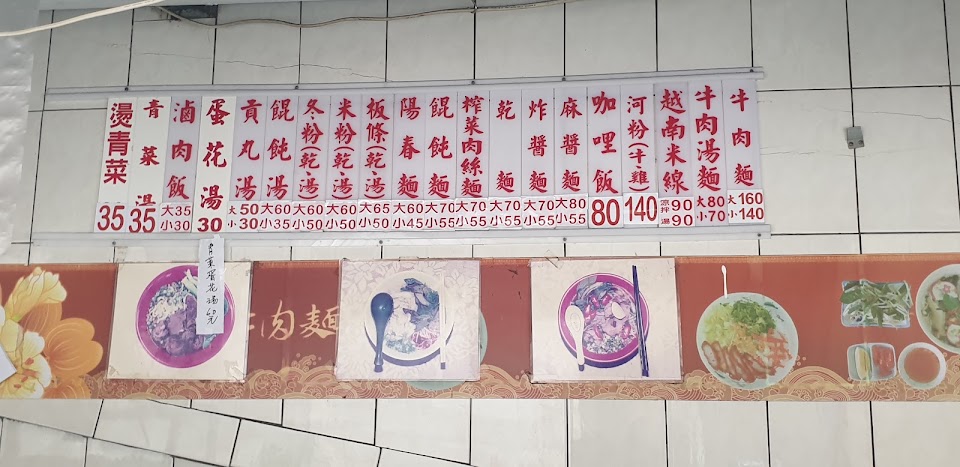 牛肉麵 大160 小140
牛肉湯麵 大80 小70
越南米線 涼拌90 湯90
河粉(牛、雞) 140
咖哩飯 80
麻醬麵 大80 小55
炸醬麵 大70 小55
乾麵 大70 小55
榨菜肉絲麵 大70 小55
餛飩麵 大70 小55
陽春麵 大60 小45
板條(乾、湯) 大65 小50
米粉(乾、湯) 大60 小50
冬粉(乾、湯) 大60 小50
餛飩湯 大60 小35
貢丸湯 大50 小30
蛋花湯 30
滷肉飯 大35 小30
青菜湯 35
燙青菜 35
青菜蛋花湯60元
牛肉麵